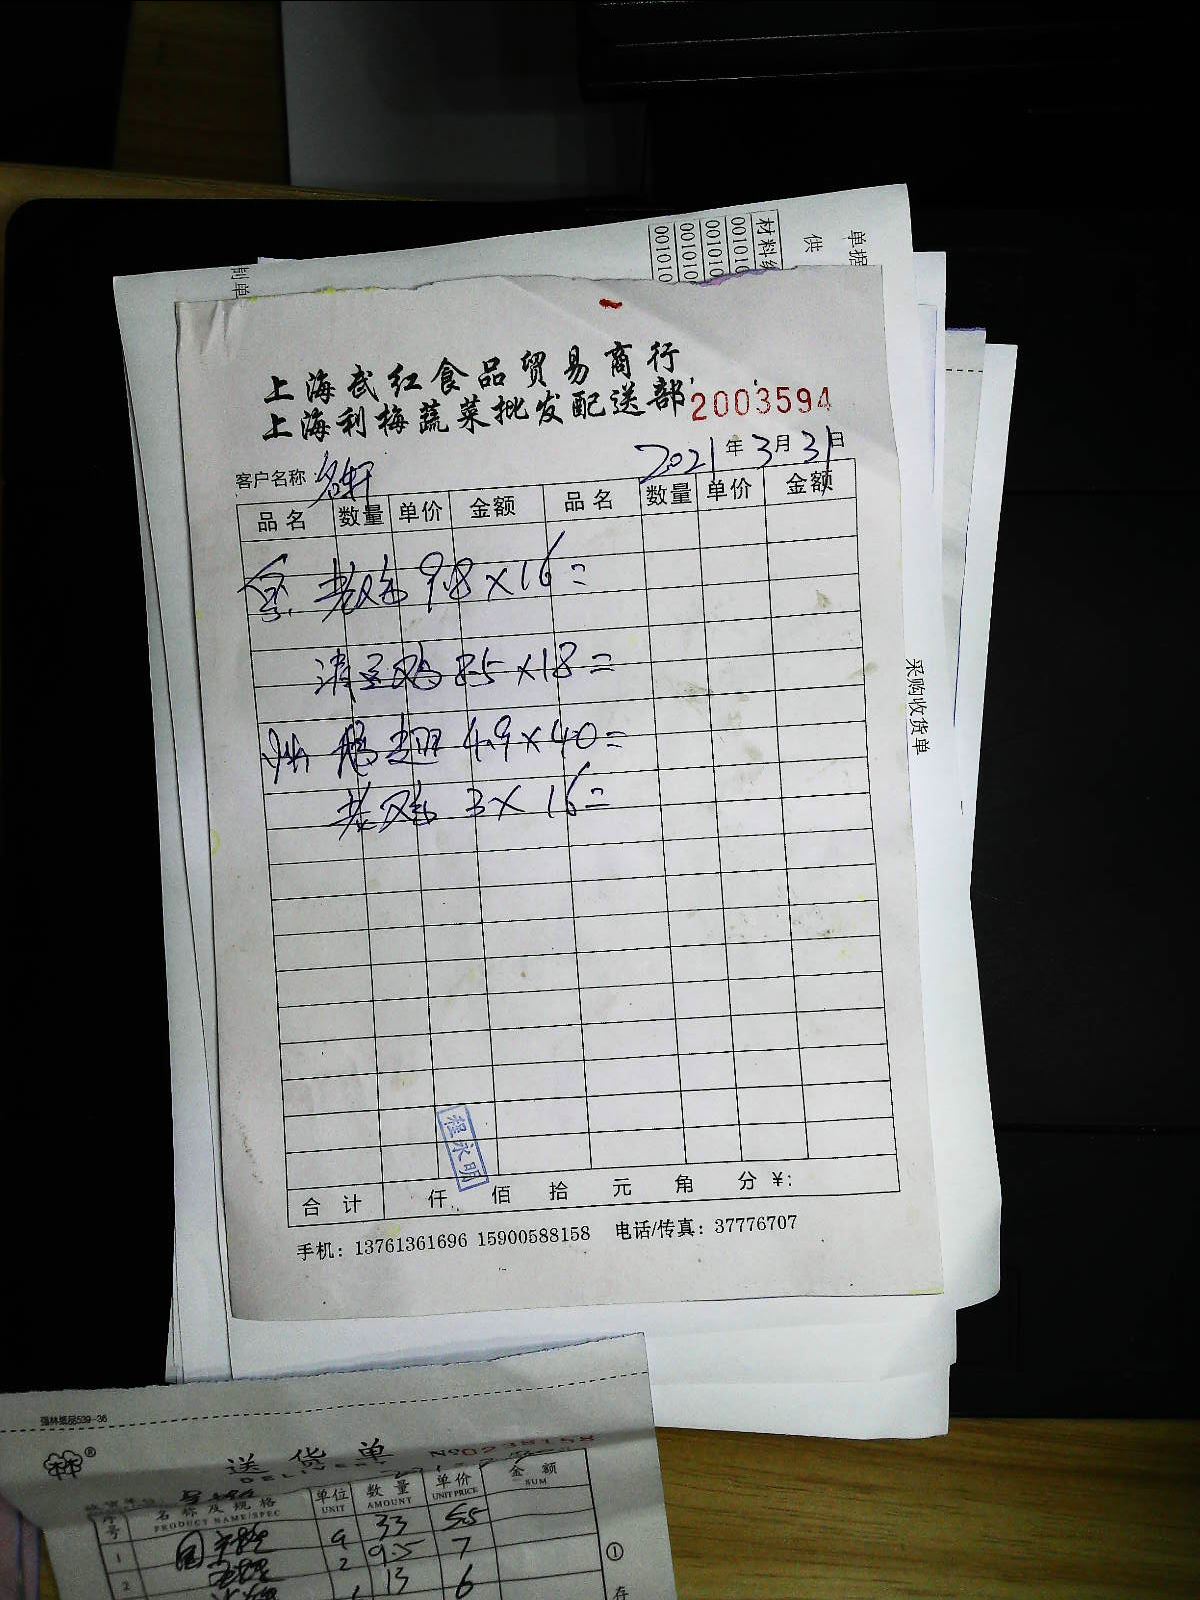 单据
供
材料
001010
001010
001010
001010
制单
上海武红食品贸易商行
上海利梅蔬菜批发配送部 2003594
客户名称 名轩 2021年3月31日
品名 数量 单价 金额 品名 数量 单价 金额
老鸡 9.8×16=
清远鸡 8.5×18=
翅 4.9×40=
老鸡 3×16=
采购收货单
程永明
合计 仟 佰 拾 元 角 分 ¥:
手机：13761361696 15900588158 电话/传真：37776707
强林纸品539-36
林®
送货单 No 0238158
序号 名称及规格 PRODUCT NAME/SPEC 单位 UNIT 数量 AMOUNT 单价 UNIT PRICE 金额 SUM
1 33 5.5
2 9.5 7
13 6
①
存